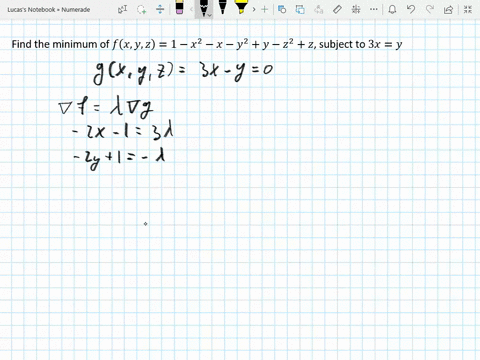 Lucas's Notebook » Numerade
Find the minimum of f(x, y, z) = 1 − x² − x − y² + y − z² + z, subject to 3x = y
g(x, y, z) = 3x − y = 0
∇f = λ∇g
−2x − 1 = 3λ
−2y + 1 = −λ